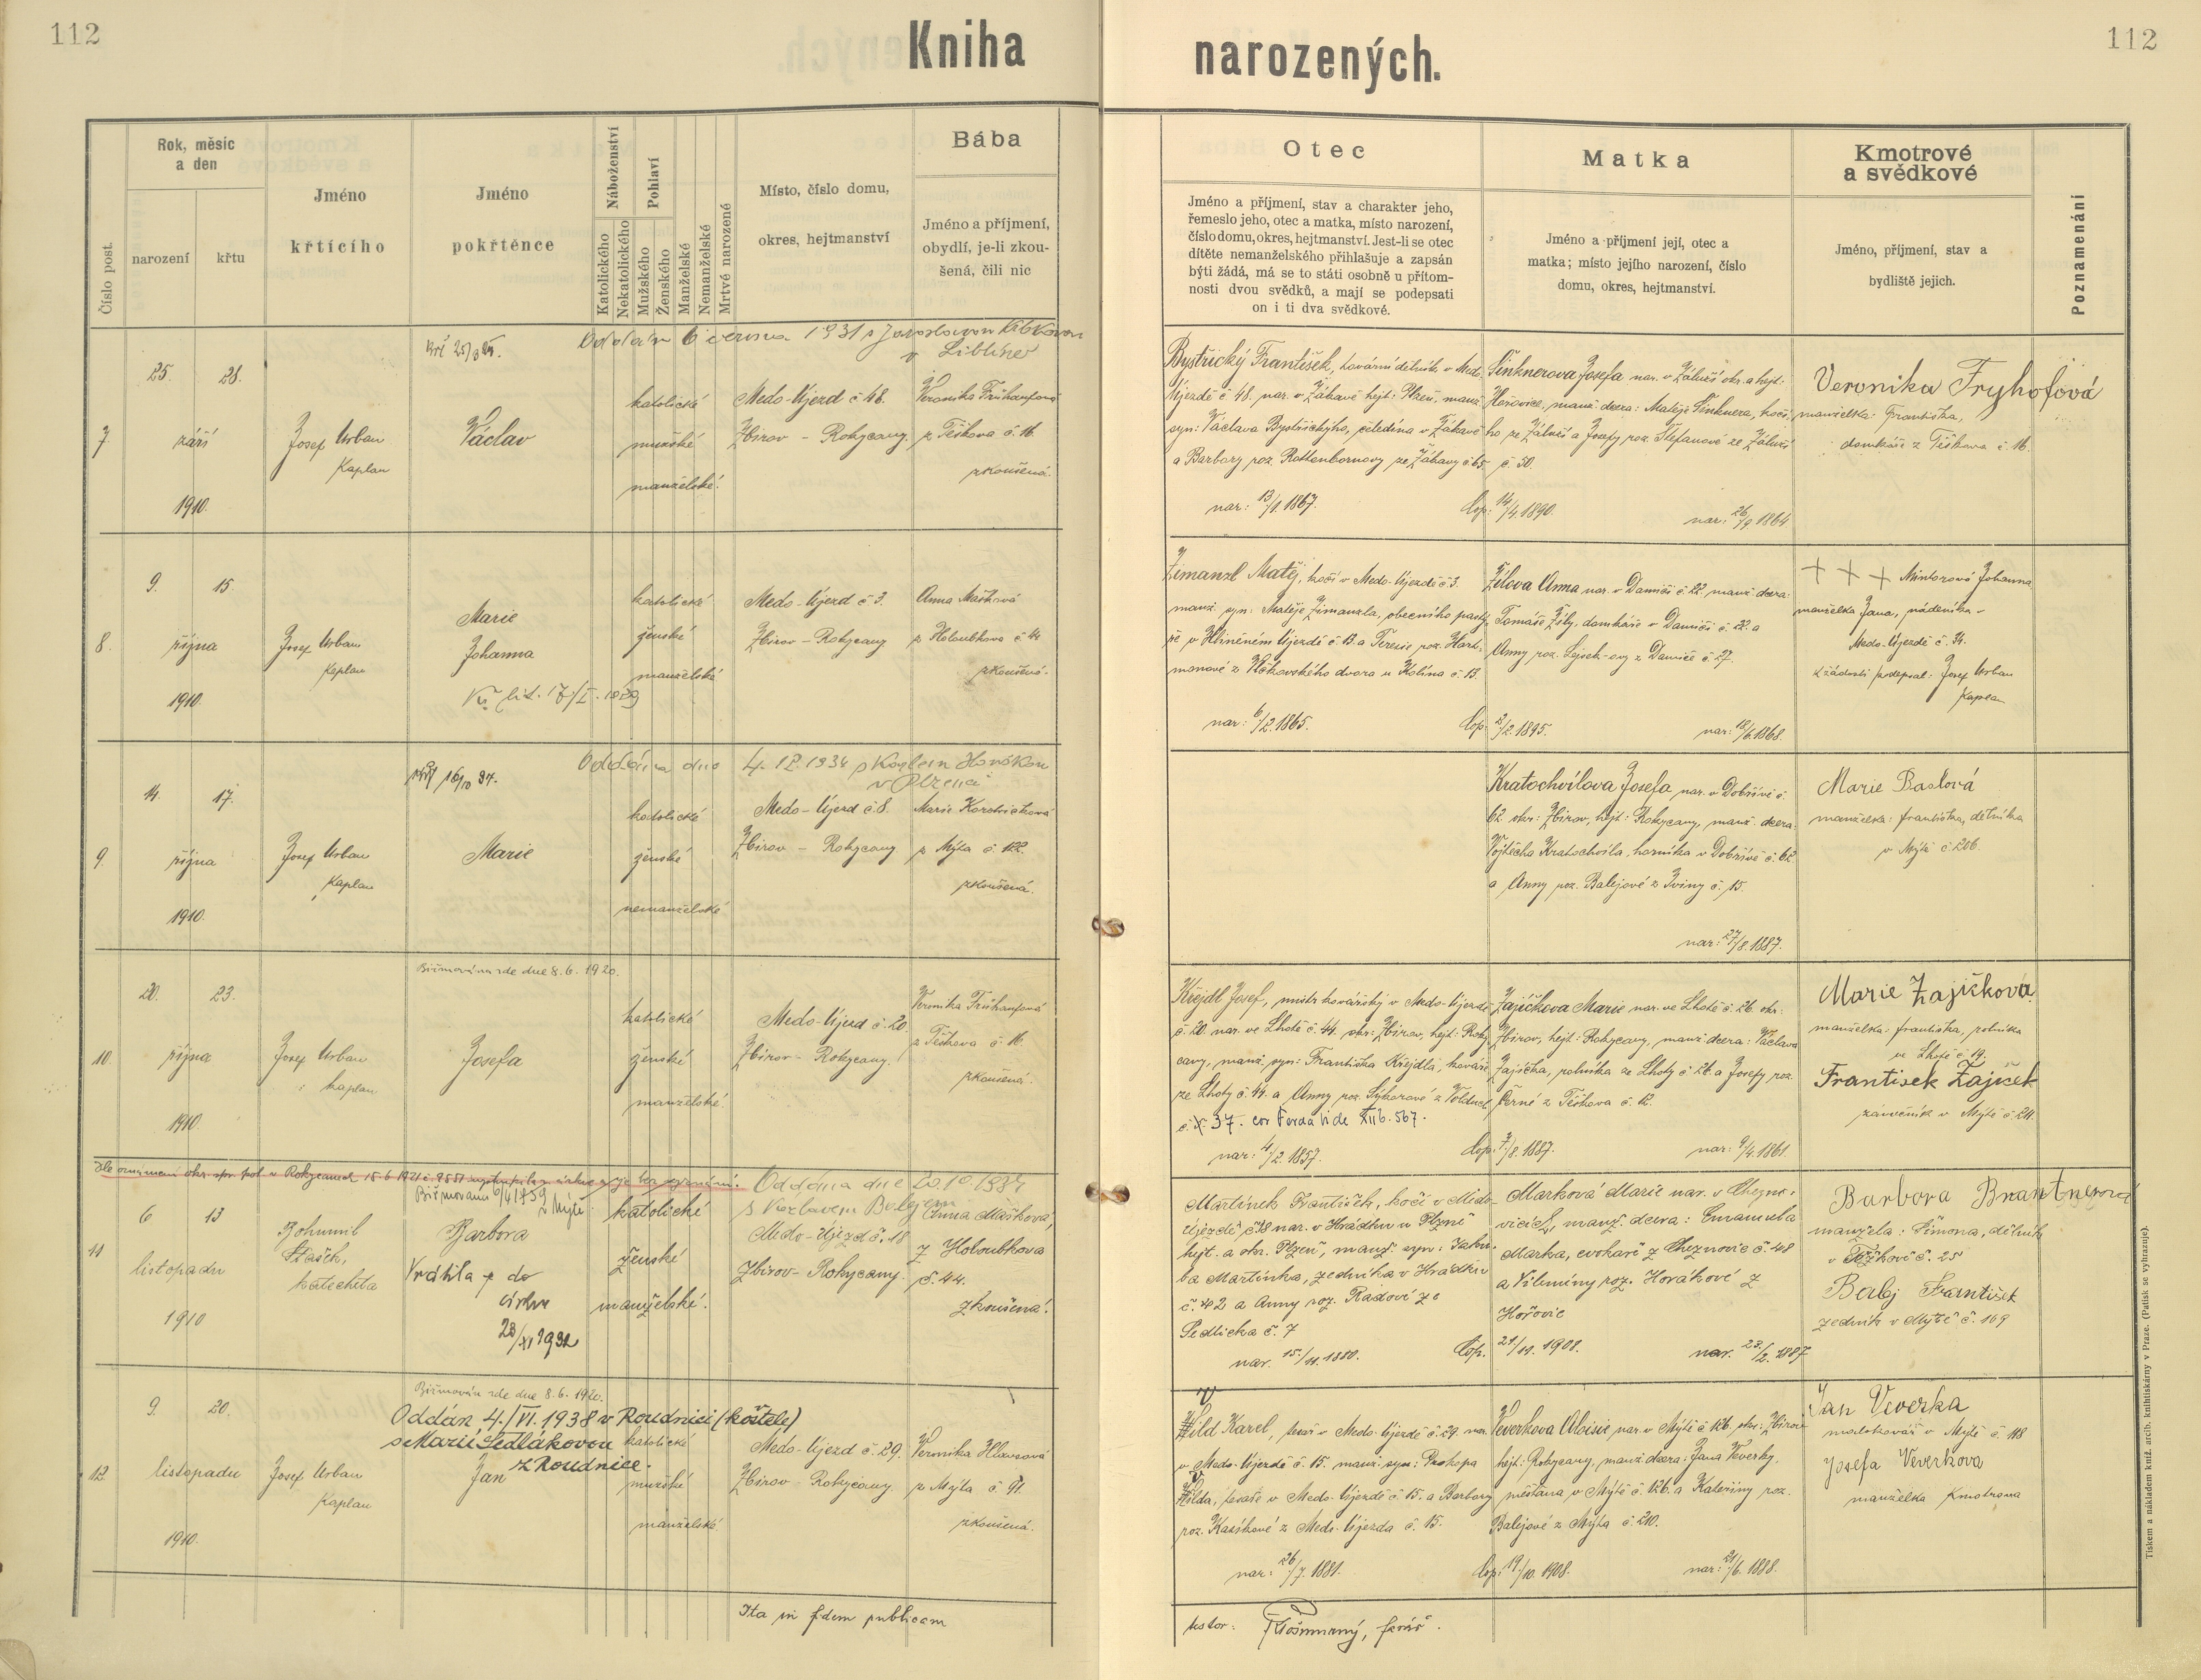 112
Kniha
narozených.
112
Číslo post.
Rok, měsíc
a den
narození
křtu
Jméno
křtícího
Jméno
pokřtěnce
Náboženství
Katolického
Nekatolického
Pohlaví
Mužského
Ženského
Manželské
Nemanželské
Mrtvé narozené
Místo, číslo domu,
okres, hejtmanství
Bába
Jméno a příjmení,
obydlí, je-li zkou-
šená, čili nic
Otec
Jméno a příjmení, stav a charakter jeho,
řemeslo jeho, otec a matka, místo narození,
číslo domu, okres, hejtmanství. Jest-li se otec
dítěte nemanželského přihlašuje a zapsán
býti žádá, má se to státi osobně u přítom-
nosti dvou svědků, a mají se podepsati
on i ti dva svědkové.
Matka
Jméno a příjmení její, otec a
matka; místo jejího narození, číslo
domu, okres, hejtmanství.
Kmotrové
a svědkové
Jméno, příjmení, stav a
bydliště jejich.
Poznamenání
Oddán 6 června 1931 s Jaroslavou
v Liblíně
7
25. 28.
září
1910.
Josef Urban
Kaplan
Václav
katolické
mužské
manželské.
Medo-Újezd č 48.
Zbirov - Rokycany.
Veronika Frühaufová
z Těškova č. 16.
zkoušená.
Bystřický František, tovární dělník v Medo-
Újezdě č 48. nar. v Zákavě hejt: Plzeň, manž.
syn: Václava Bystřického, čeledína v Zákavě
a Barbory roz. Rottenbornovy ze Zákavy č 65.
nar: 13/1. 1867.
Šinknerova Josefa nar. v Záluží okr. a hejt:
Hořovice, manž. dcera: Matěje Šinknera, kočí-
ho ze Záluží a Josefy roz. Štefanové ze Záluží
č. 50.
Cop: 14/4. 1890.
nar: 26/9 1864
Veronika Fryhofová
manželka: Františka,
domkáře z Těškova č. 16.
8.
9. 15
října
1910.
Josef Urban
Kaplan
Marie
Johanna
katolické
ženské
manželské
Medo-Újezd č 3.
Zbirov - Rokycany
Anna Mašková
z Holoubkova č 44
zkoušená.
Zimanzl Matěj, kočí v Medo-Újezdě č 3.
manž. syn: Matěje Zimanzla, obecního pastý-
ře v Hliněném Újezdě č. 13. a Terezie roz. Hart-
manové z Vlčkovského dvora u Kolína č. 13.
nar: 6/2. 1865.
nar. v Damíči č 22. manž. dcera:
domkáře v Damíči č. 22. a
Anny roz.
z Damíče č. 27.
Cop: 3/2. 1895.
nar: 18/6. 1868.
+ + + Johanna
manželka Jana, nádeníka
Medo-Újezdě č. 34.
K žádosti podepsal: Josef Urban
Kaplan
Oddána dne 4. 12. 1934 s Karlem
v Plzni
9
14. 17.
října
1910.
Josef Urban
Kaplan
Marie
katolické
ženské
nemanželské
Medo-Újezd č. 8.
Zbirov - Rokycany
Marie
z Mýta č. 122.
zkoušená.
Kratochvílova Josefa nar. v Dobřívě č.
62. okr: Zbirov, hejt: Rokycany, manž. dcera:
Vojtěcha Kratochvíla, horníka v Dobřívě č. 62
a Anny roz. Balejové z Sviny č. 15.
nar: 27/8. 1887.
Marie Baslová
manželka: Františka, dělníka
v Mýtě č. 206.
Biřmována zde dne 8. 6. 1920.
10.
20. 23.
října
1910.
Josef Urban
kaplan
Josefa
katolické
ženské
manželské
Medo-Újezd č. 20.
Zbirov - Rokycany.
Veronika Frühaufová
z Těškova č. 16.
zkoušená.
Křejdl Josef, mistr kovářský v Medo-Újezdě
č. 20. nar. ve Lhotě č. 44. okr: Zbirov, hejt: Roky-
cany, manž. syn: Františka Křejdla, kováře
ze Lhoty č. 44. a Anny roz. Sýkorové z Volduch
37.
nar: 4/2. 1857.
Zajíčkova Marie nar. ve Lhotě č. 26. okr:
Zbirov, hejt: Rokycany, manž. dcera: Václava
Zajíčka, rolníka ze Lhoty č 26. a Josefy roz.
Černé z Těškova č. 12.
Cop: 7/8. 1887.
nar: 9/4. 1861.
Marie Zajíčková
manželka: Františka, rolníka
ve Lhotě č 19.
Frantisek Zajíček
v Mýtě č. 211.
Oddána dne 20. 10. 1934
s Václavem
11
6 13
listopadu
1910
Bohumil
Stašek,
katecheta
Barbora
Vrátila se do
církve
23/XI 1932
katolické
ženské
manželské.
Medo-Újezd č. 18
Zbirov-Rokycany.
Anna Mašková,
z Holoubkova
č. 44.
zkoušená.
Martínek František, kočí v Medo-
Újezdě č. 18 nar. v Hrádku u Plzně
hejt. a okr. Plzeň, manž. syn: Jaku-
ba Martínka, zedníka v Hrádku
č. 42 a Anny roz. Radové ze
Sedlicka č. 7
nar. 15./11. 1880.
Marková Marie nar. v Cheznovicích, manž. dcera: Emanuela
Marka, cvokaře z Cheznovic č. 48
a Vilemíny roz. Horákové z
Hořovic
Cop. 21/11. 1908.
nar. 23./2. 1887
Barbora Brantnerová
manžela: Šimona, dělník
v Těškově č. 25
Balej František
zedník v Mýtě č. 169
Biřmován zde dne 8. 6. 1920.
Oddán 4./VI. 1938 v Roudnici (kostele)
s Marií Sedlákovou
z Roudnice.
12.
9. 20.
listopadu
1910.
Josef Urban
Kaplan
Jan
katolické
mužské
manželské
Medo-Újezd č. 29.
Zbirov - Rokycany.
Veronika Hlavsová
z Mýta č 91.
zkoušená.
Vild Karel, tesař v Medo-Újezdě č. 29. nar.
v Medo-Újezdě č. 15. manž. syn: Prokopa
Vilda, tesaře v Medo-Újezdě č 15. a Barbory
roz. Kasíkové z Medo-Újezda č. 15.
nar: 26/7. 1881.
Veverkova Aloisie nar. v Mýtě č 126. okr: Zbirov
hejt: Rokycany, manž. dcera: Jana Veverky,
měšťana v Mýtě č. 126. a Kateřiny roz.
Balejové z Mýta č. 210.
Cop: 19/10. 1908.
nar: 21/6. 1888.
Jan Veverka
v Mýtě č. 118
Josefa Veverkova
manželka Kmotrova
Ita in fidem publicam
testor:
farář.
Tiskem a nákladem kníž. arcib. knihtiskárny v Praze. (Patisk se vyhrazuje).